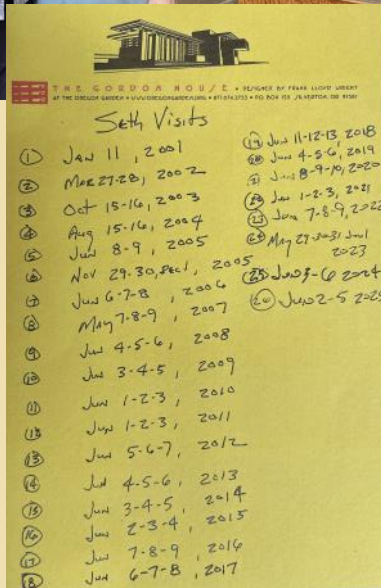 THE GORDON HOUSE • DESIGNED BY FRANK LLOYD WRIGHT
AT THE OREGON GARDEN • WWW.OREGONGARDEN.ORG • 877.674.2733 • PO BOX 155 SILVERTON, OR 97381
Seth Visits
① Jan 11, 2001
② Mar 27-28, 2002
③ Oct 15-16, 2003
④ Aug 15-16, 2004
⑤ Jun 8-9, 2005
⑥ Nov 29-30, Dec 1, 2005
⑦ Jun 6-7-8, 2006
⑧ May 7-8-9, 2007
⑨ Jun 4-5-6, 2008
⑩ Jun 3-4-5, 2009
⑪ Jun 1-2-3, 2010
⑫ Jun 1-2-3, 2011
⑬ Jun 5-6-7, 2012
⑭ Jun 4-5-6, 2013
⑮ Jun 3-4-5, 2014
⑯ Jun 2-3-4, 2015
⑰ Jun 7-8-9, 2016
⑱ Jun 6-7-8, 2017
⑲ Jun 11-12-13, 2018
⑳ Jun 4-5-6, 2019
㉑ Jun 8-9-10, 2020
Jun 1-2-3, 2021
㉓ June 7-8-9, 2022
㉔ May 29-30-31 Jun 1
2023
㉕ Jun 3-6 2024
㉖ Jun 2-5 2025